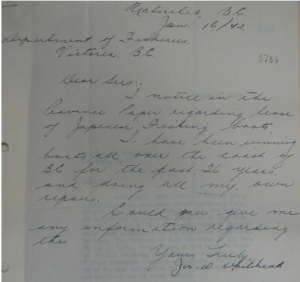 B.C.
Jan. 16/42
Department of Fisheries,
Victoria, B.C.
0786
Dear Sirs:
I notice in the
Province Paper regarding lease
of Japanese Fishing boats.
I have been running
boats all over the coast of
B.C. for the past 26 years,
and doing all my own
repairs.
Could you give me
any information regarding
this
Yours Truly
Jos. D. Whitehead